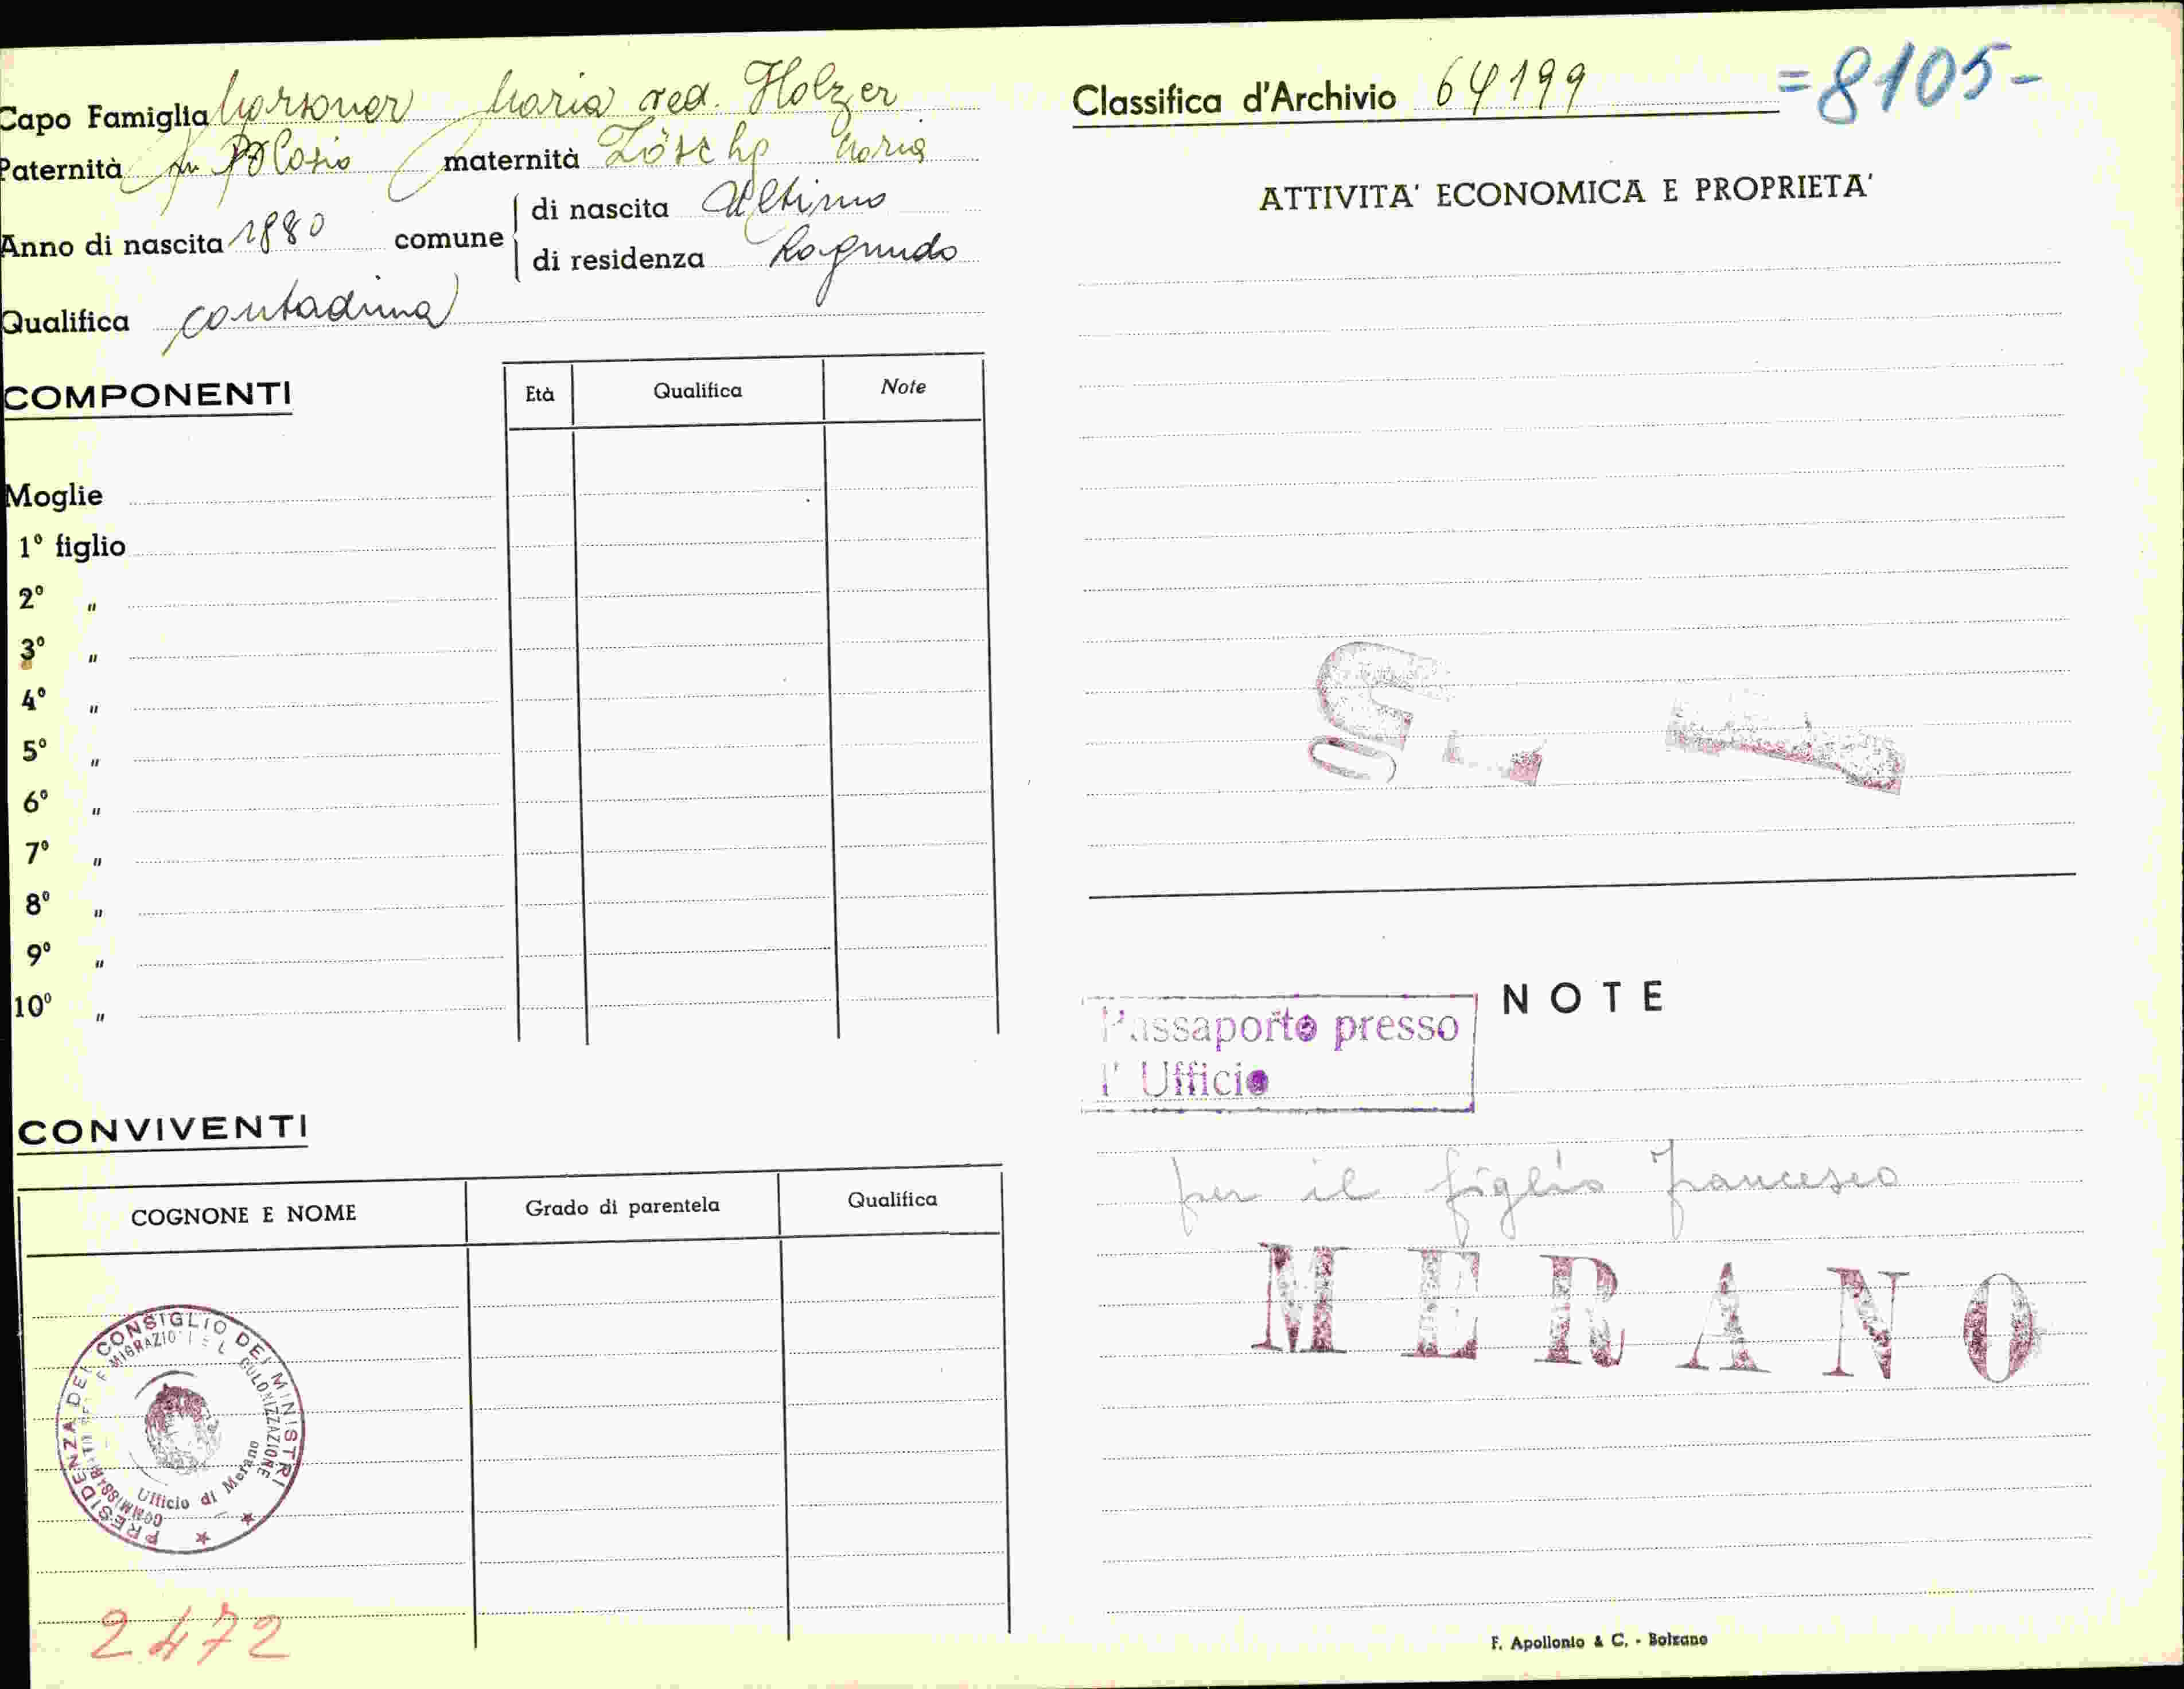 Capo Famiglia Marsoner Maria ved. Holzer
Paternità fu Blasio maternità Lösch Maria
Anno di nascita 1880 comune di nascita Ultimo
di residenza Lagundo
Qualifica contadina
COMPONENTI
Età Qualifica Note
Moglie
1° figlio
2° "
3° "
4° "
5° "
6° "
7° "
8° "
9° "
10° "
CONVIVENTI
COGNONE E NOME Grado di parentela Qualifica
PRESIDENZA DEL CONSIGLIO DEI MINISTRI
Ufficio di Merano
2472
Classifica d'Archivio 64199 =8105-
ATTIVITA' ECONOMICA E PROPRIETA'
NOTE
Passaporto presso
l' Ufficio
per il figlio Francesco
MERANO
F. Apollonio & C. - Bolzano